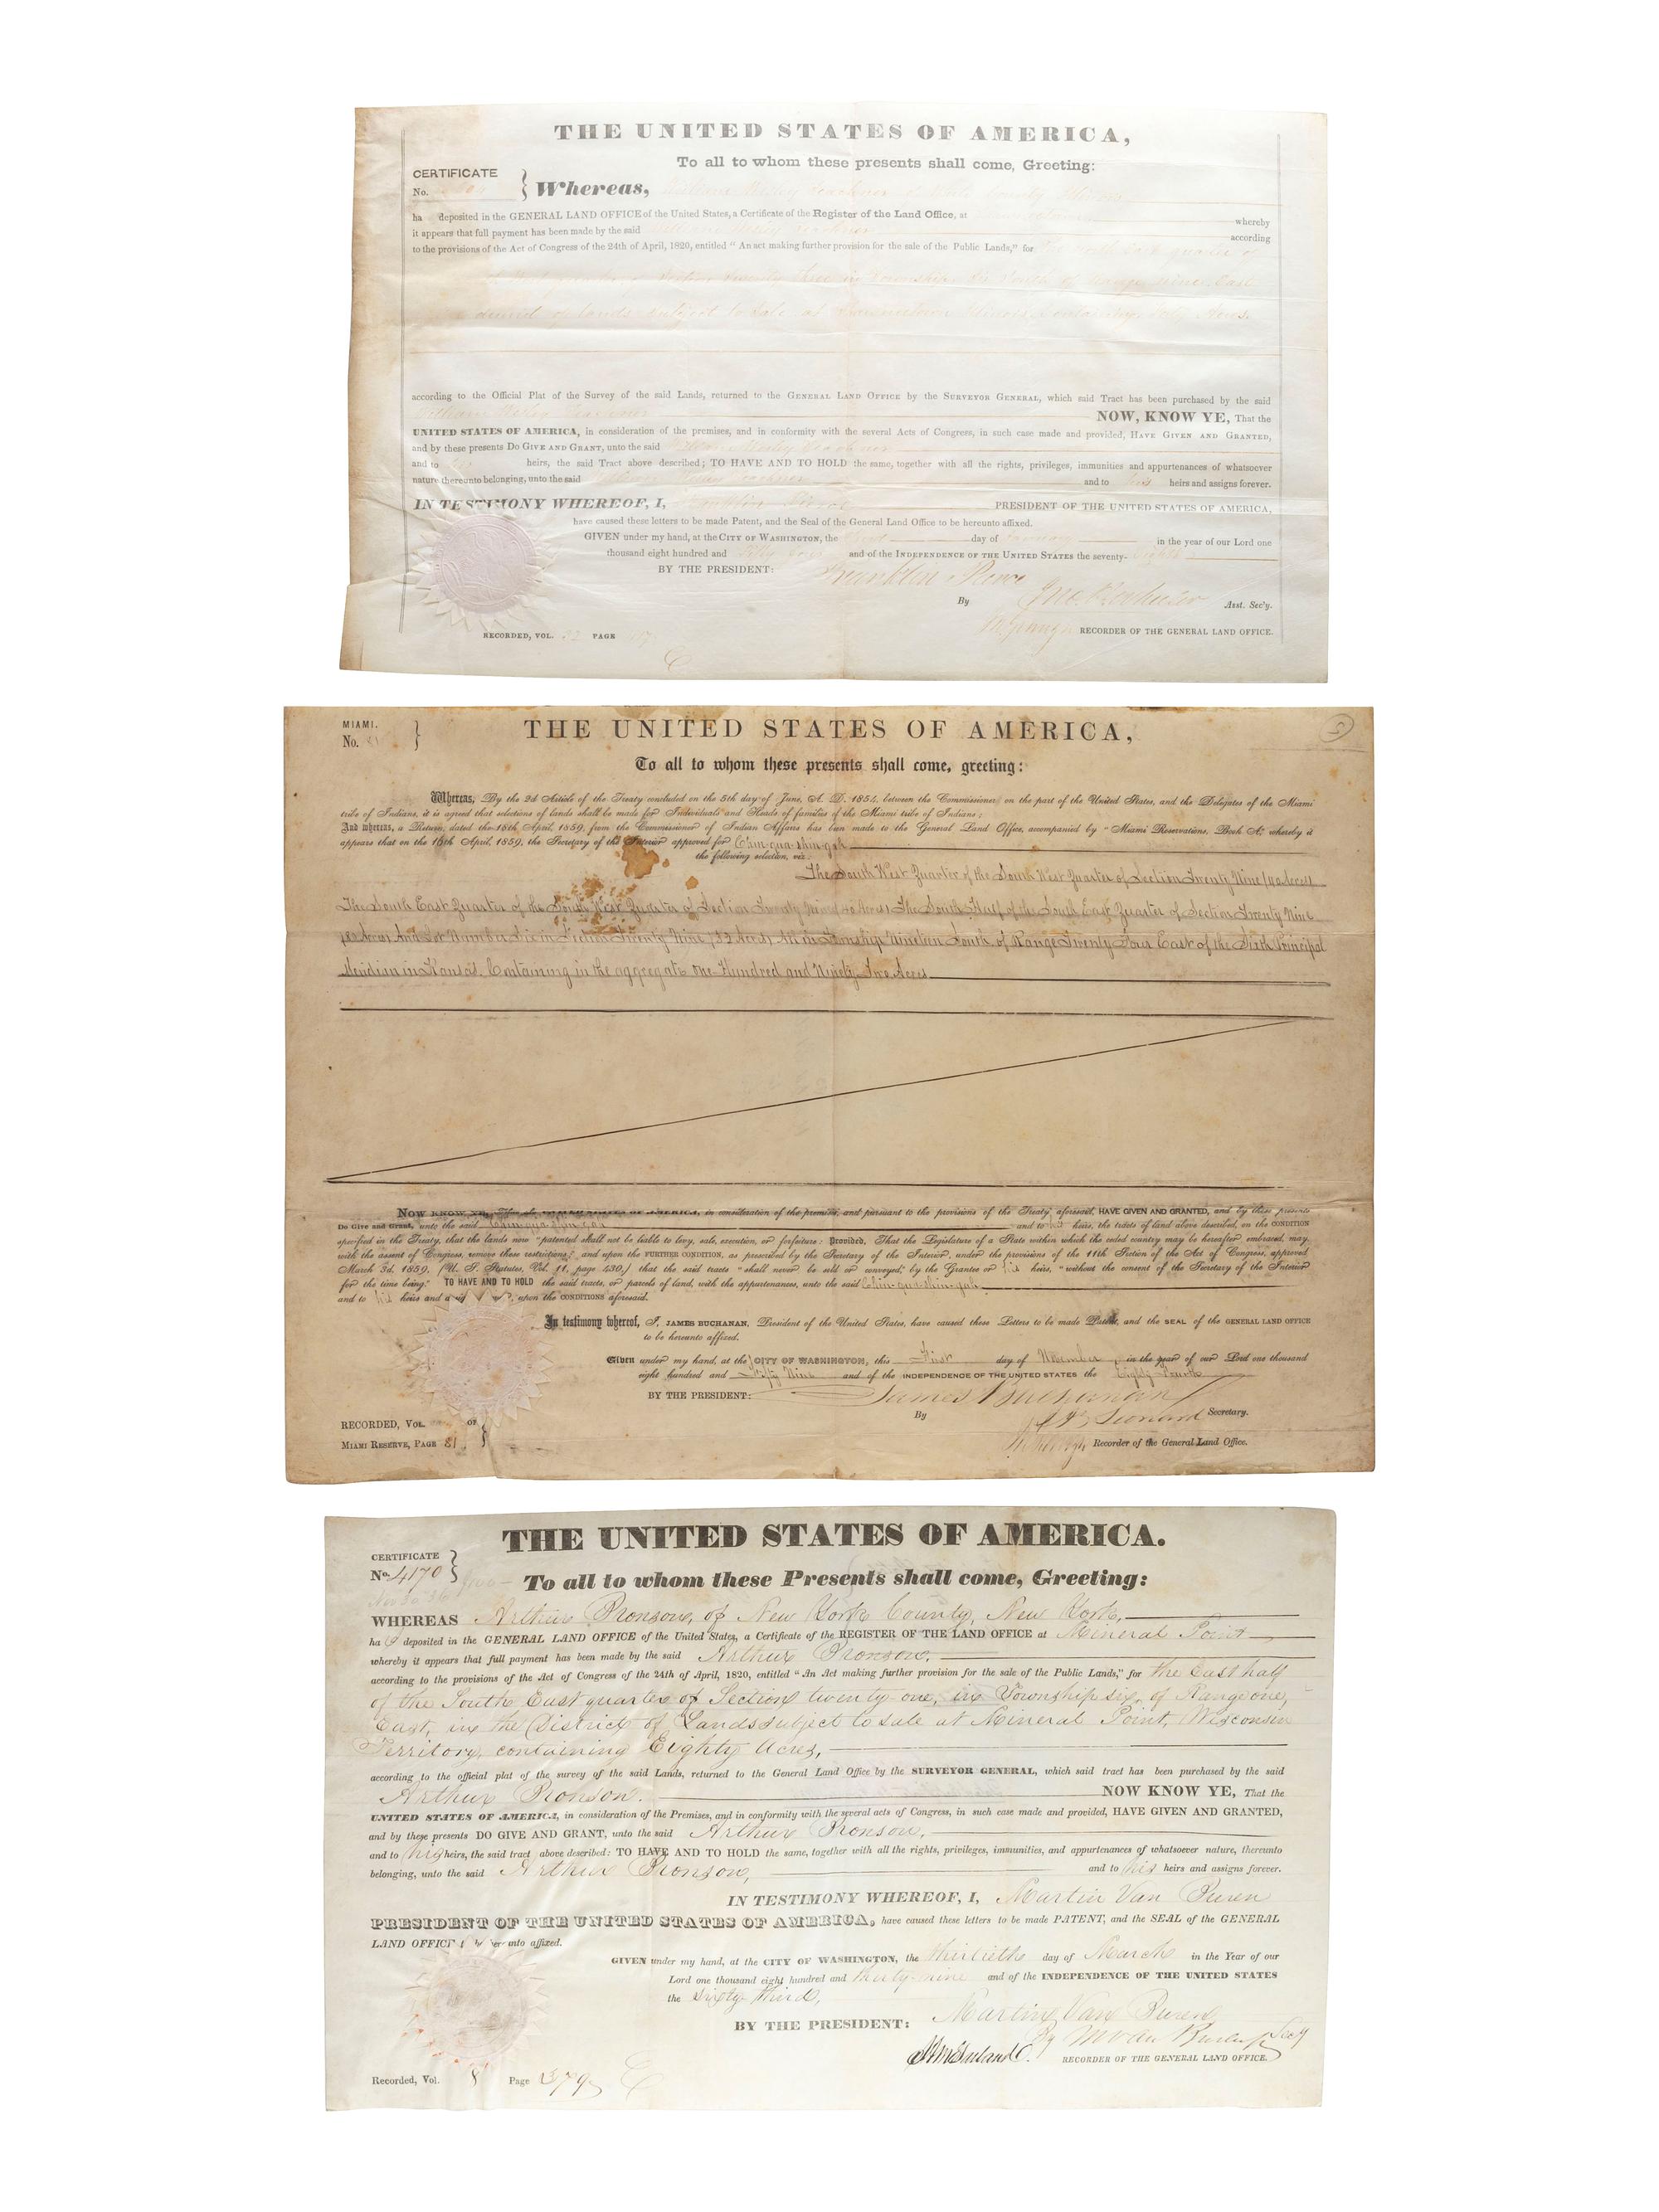 THE UNITED STATES OF AMERICA,
To all to whom these presents shall come, Greeting:
CERTIFICATE
No.
Whereas,
ha deposited in the GENERAL LAND OFFICE of the United States, a Certificate of the Register of the Land Office, at whereby
it appears that full payment has been made by the said according
to the provisions of the Act of Congress of the 24th of April, 1820, entitled "An act making further provision for the sale of the Public Lands," for
Section twenty three in Township six South of Range nine East
district of lands subject to sale at Shawneetown Illinois containing forty Acres.
according to the Official Plat of the Survey of the said Lands, returned to the GENERAL LAND OFFICE by the SURVEYOR GENERAL, which said Tract has been purchased by the said
William Wesley NOW, KNOW YE, That the
UNITED STATES OF AMERICA, in consideration of the premises, and in conformity with the several Acts of Congress, in such case made and provided, HAVE GIVEN AND GRANTED,
and by these presents DO GIVE AND GRANT, unto the said William Wesley
and to his heirs, the said Tract above described; TO HAVE AND TO HOLD the same, together with all the rights, privileges, immunities and appurtenances of whatsoever
nature thereunto belonging, unto the said William Wesley and to his heirs and assigns forever.
IN TESTIMONY WHEREOF, I, Franklin Pierce PRESIDENT OF THE UNITED STATES OF AMERICA,
have caused these letters to be made Patent, and the Seal of the General Land Office to be hereunto affixed.
GIVEN under my hand, at the CITY OF WASHINGTON, the first day of in the year of our Lord one
thousand eight hundred and fifty four and of the INDEPENDENCE OF THE UNITED STATES the seventy-
BY THE PRESIDENT: Franklin Pierce
By Asst. Sec'y.
RECORDER OF THE GENERAL LAND OFFICE.
RECORDED, VOL. PAGE
MIAMI.
No. 81
THE UNITED STATES OF AMERICA,
To all to whom these presents shall come, greeting:
Whereas, By the 2d Article of the Treaty concluded on the 5th day of June, A. D. 1854, between the Commissioner on the part of the United States, and the Delegates of the Miami
tribe of Indians, it is agreed that selections of lands shall be made for Individuals and Heads of families of the Miami tribe of Indians:
And whereas, a Return, dated the 18th April, 1859, from the Commissioner of Indian Affairs has been made to the General Land Office, accompanied by "Miami Reservations, Book A," whereby it
appears that on the 16th April, 1859, the Secretary of the Interior approved for Chin-gua-shin-gah
the following selection, viz:
The South West Quarter of the South West Quarter of Section Twenty Nine (40 Acres)
The South East Quarter of the South West Quarter of Section Twenty Nine (40 Acres) The South Half of the South East Quarter of Section Twenty Nine
(80 Acres) And Lot Number Six in Section Twenty Nine (32 Acres) All in Township Nineteen South, of Range Twenty Four East of the Sixth Principal
Meridian in Kansas, Containing in the aggregate One Hundred and Ninety Two Acres
NOW KNOW YE, That the UNITED STATES OF AMERICA, in consideration of the premises, and pursuant to the provisions of the Treaty aforesaid, HAVE GIVEN AND GRANTED, and by these presents
Do Give and Grant, unto the said Chin-gua-shin-gah and to his heirs, the tracts of land above described, on the CONDITION
specified in the Treaty, that the lands now "patented shall not be liable to levy, sale, execution, or forfeiture: Provided, That the Legislature of a State within which the ceded country may be hereafter embraced, may,
with the assent of Congress, remove these restrictions;" and upon the FURTHER CONDITION, as prescribed by the Secretary of the Interior, under the provisions of the 11th Section of the Act of Congress, approved
March 3d, 1859, (U. S. Statutes, Vol. 11, page 430,) that the said tracts "shall never be sold or conveyed," by the Grantee or his heirs, "without the consent of the Secretary of the Interior
for the time being." TO HAVE AND TO HOLD the said tracts, or parcels of land, with the appurtenances, unto the said Chin-gua-shin-gah
and to his heirs and upon the CONDITIONS aforesaid.
In testimony whereof, I, JAMES BUCHANAN, President of the United States, have caused these Letters to be made Patent, and the SEAL of the GENERAL LAND OFFICE
to be hereunto affixed.
Given under my hand, at the CITY OF WASHINGTON, this First day of November, in the year of our Lord one thousand
eight hundred and Fifty Nine and of the INDEPENDENCE OF THE UNITED STATES the Eighty Fourth
BY THE PRESIDENT: James Buchanan
By Leonard Secretary.
RECORDED, VOL. OF
MIAMI RESERVE, PAGE 81.
Recorder of the General Land Office.
THE UNITED STATES OF AMERICA.
CERTIFICATE
No. 4170
To all to whom these Presents shall come, Greeting:
WHEREAS Arthur Bronson, of New York County, New York,
ha deposited in the GENERAL LAND OFFICE of the United States, a Certificate of the REGISTER OF THE LAND OFFICE at Mineral Point
whereby it appears that full payment has been made by the said Arthur Bronson,
according to the provisions of the Act of Congress of the 24th of April, 1820, entitled "An Act making further provision for the sale of the Public Lands," for the East half
of the South East quarter of Section twenty-one, in Township six, of Range one,
East, in the District of Lands subject to sale at Mineral Point, Wisconsin
Territory, containing Eighty Acres,
according to the official plat of the survey of the said Lands, returned to the General Land Office by the SURVEYOR GENERAL, which said tract has been purchased by the said
Arthur Bronson. NOW KNOW YE, That the
UNITED STATES OF AMERICA, in consideration of the Premises, and in conformity with the several acts of Congress, in such case made and provided, HAVE GIVEN AND GRANTED,
and by these presents DO GIVE AND GRANT, unto the said Arthur Bronson,
and to his heirs, the said tract above described: TO HAVE AND TO HOLD the same, together with all the rights, privileges, immunities, and appurtenances of whatsoever nature, thereunto
belonging, unto the said Arthur Bronson, and to his heirs and assigns forever.
IN TESTIMONY WHEREOF, I, Martin Van Buren
PRESIDENT OF THE UNITED STATES OF AMERICA, have caused these letters to be made PATENT, and the SEAL of the GENERAL
LAND OFFICE to be hereunto affixed.
GIVEN under my hand, at the CITY OF WASHINGTON, the thirtieth day of March in the Year of our
Lord one thousand eight hundred and thirty-nine and of the INDEPENDENCE OF THE UNITED STATES
the sixty third,
BY THE PRESIDENT: Martin Van Buren
By M Van Buren Jr Secy
RECORDER OF THE GENERAL LAND OFFICE.
Recorded, Vol. 8 Page 379